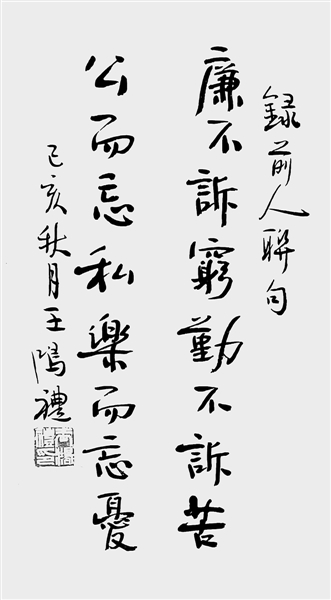 錄前人聯句
廉不訴窮勤不訴苦
公而忘私樂而忘憂
己亥秋月王鴻禮